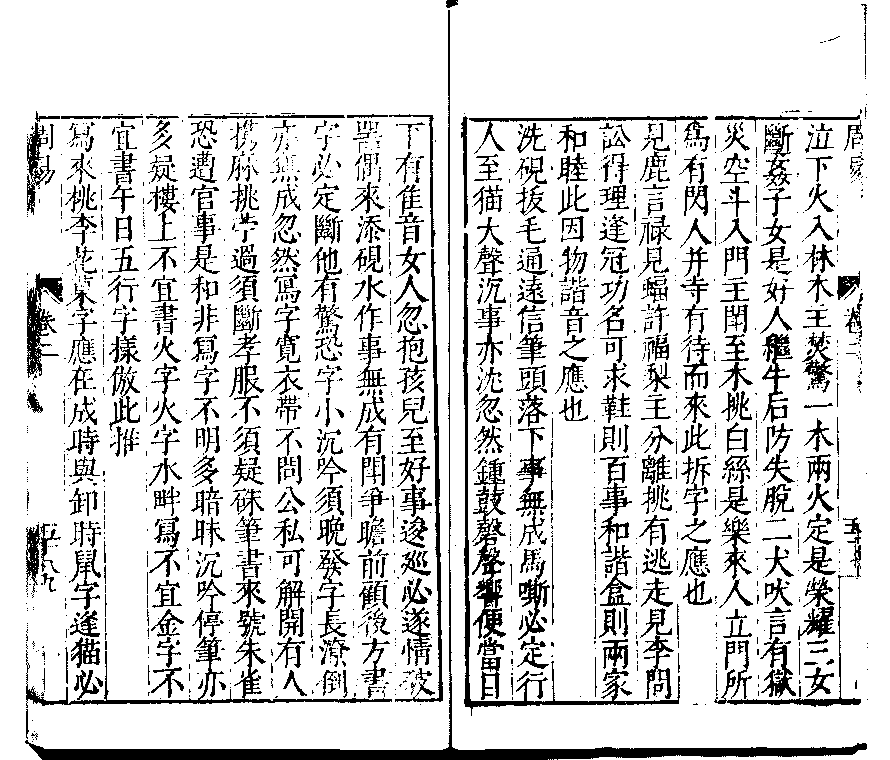 周易
卷二
五
泣下火入林木王焚驚一木兩火定是榮耀三女
斷姦子女是好人繼牛后防失脫二犬吠言有獄
災空斗入門主鬧至木挑白絲是樂來人立門所
爲有閃人并寺有待而來此拆字之應也
見鹿言祿見蝠許福梨主分離桃有逃走見李問
訟得理逢冠功名可求鞋則百事和諧盒則兩家
和睦此因物諧音之應也
洗硯拔毛通遠信筆頭落下事無成馬嘶必定行
人至猫犬聲沉事亦沈忽然鍾鼓磬聲響便當日
下有隹音女人忽抱孩兒至好事逡廵必遂情破
器偶來添硯水作事無成有閙爭瞻前顧後方書
字必定斷他有驚恐字小沉吟須晚發字長潦倒
亦無成忽然寫字寬衣帶不問公私可解開有人
携麻挑苧過須斷孝服不須疑硃筆書來號朱雀
恐遭官事是和非寫字不明多暗昧沉吟停筆亦
多疑樓上不宜書火字火字水畔寫不宜金字不
宜書午日五行字樣倣此推
寫來桃李花菓字應在成時與卸時鼠字逢猫必
周易
卷二
五十八九